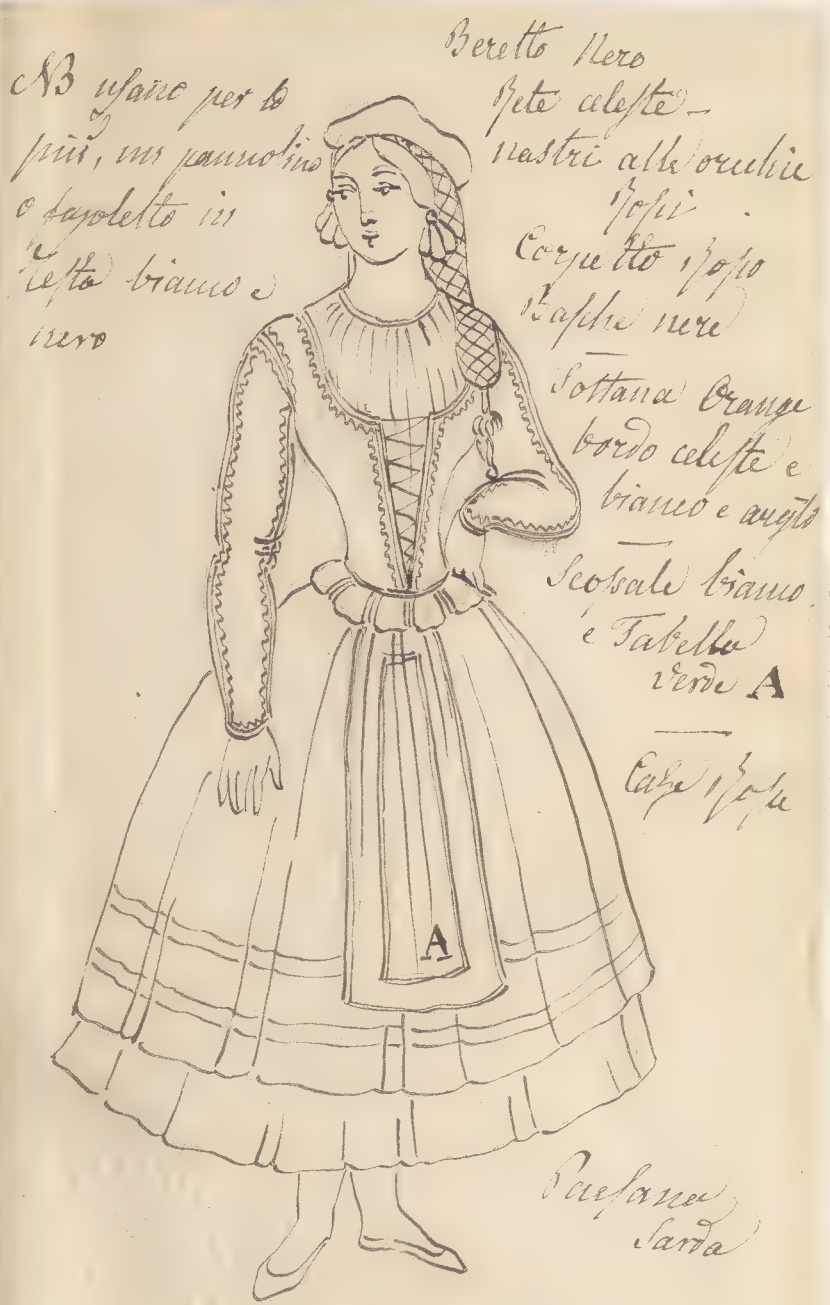 NB usano per lo
più, un pannolino
o fazoletto in
testa bianco e
nero
Beretto Nero
Rete celeste -
nastri alle orechie
Rossi
Corpetto Rosso
Basche nere
Sottana Orange
bordo celeste e
bianco e argto
Scossale bianco
e Tabella
verde A
Calze Rosse
A
Paesana
Sarda